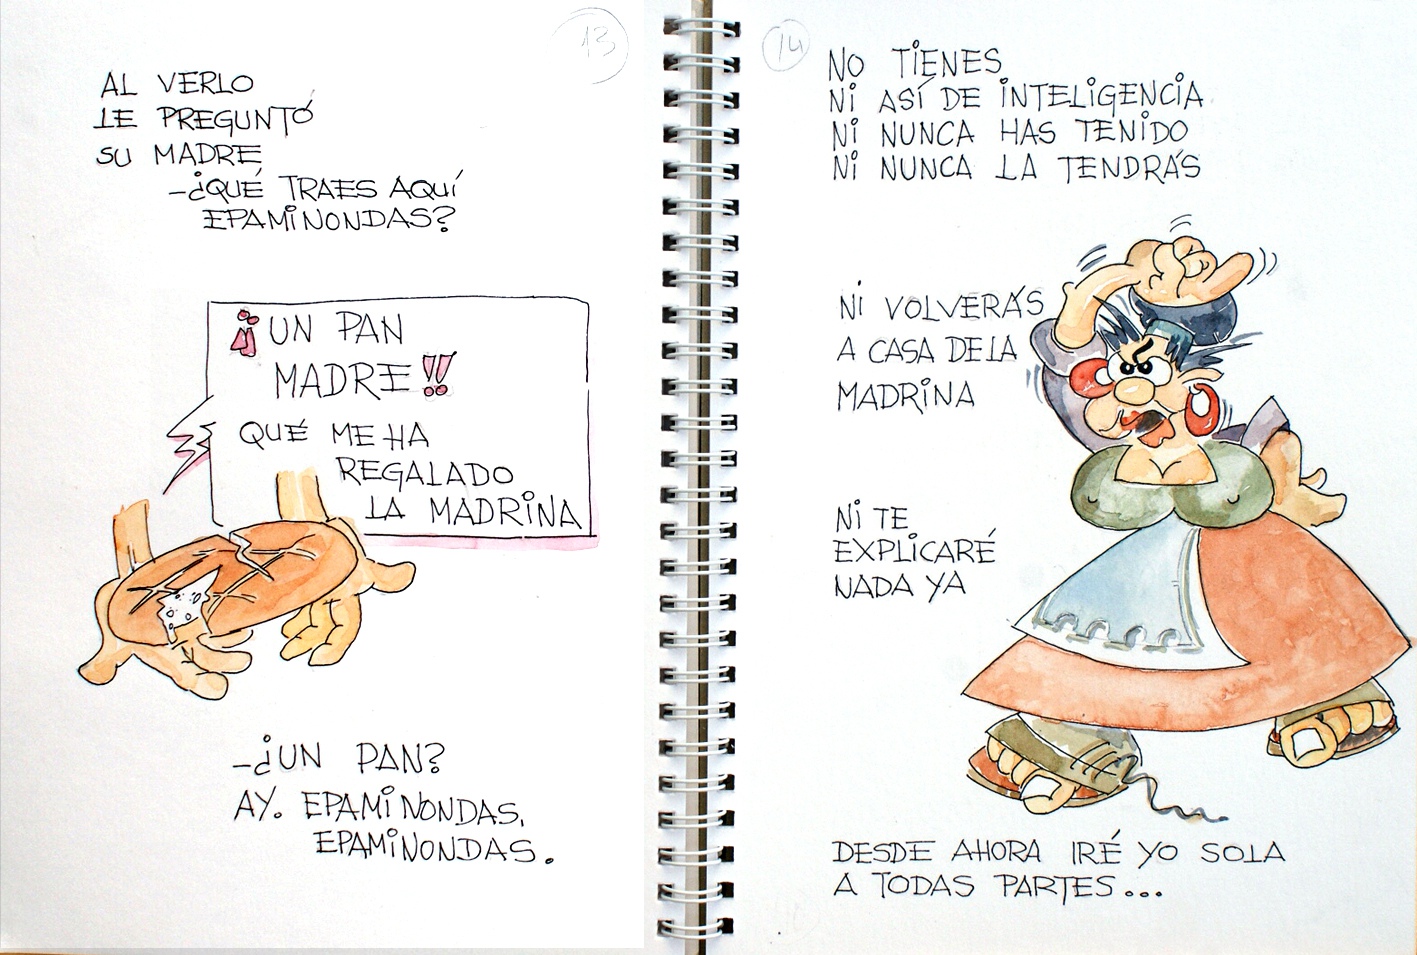 13
AL VERLO
LE PREGUNTÓ
SU MADRE
-¿QUÉ TRAES AQUÍ
EPAMINONDAS?
¡UN PAN
MADRE!!
QUÉ ME HA
REGALADO
LA MADRINA
-¿UN PAN?
AY. EPAMINONDAS,
EPAMINONDAS.
14
NO TIENES
NI ASÍ DE INTELIGENCIA
NI NUNCA HAS TENIDO
NI NUNCA LA TENDRÁS
NI VOLVERÁS
A CASA DE LA
MADRINA
NI TE
EXPLICARÉ
NADA YA
DESDE AHORA IRÉ YO SOLA
A TODAS PARTES...